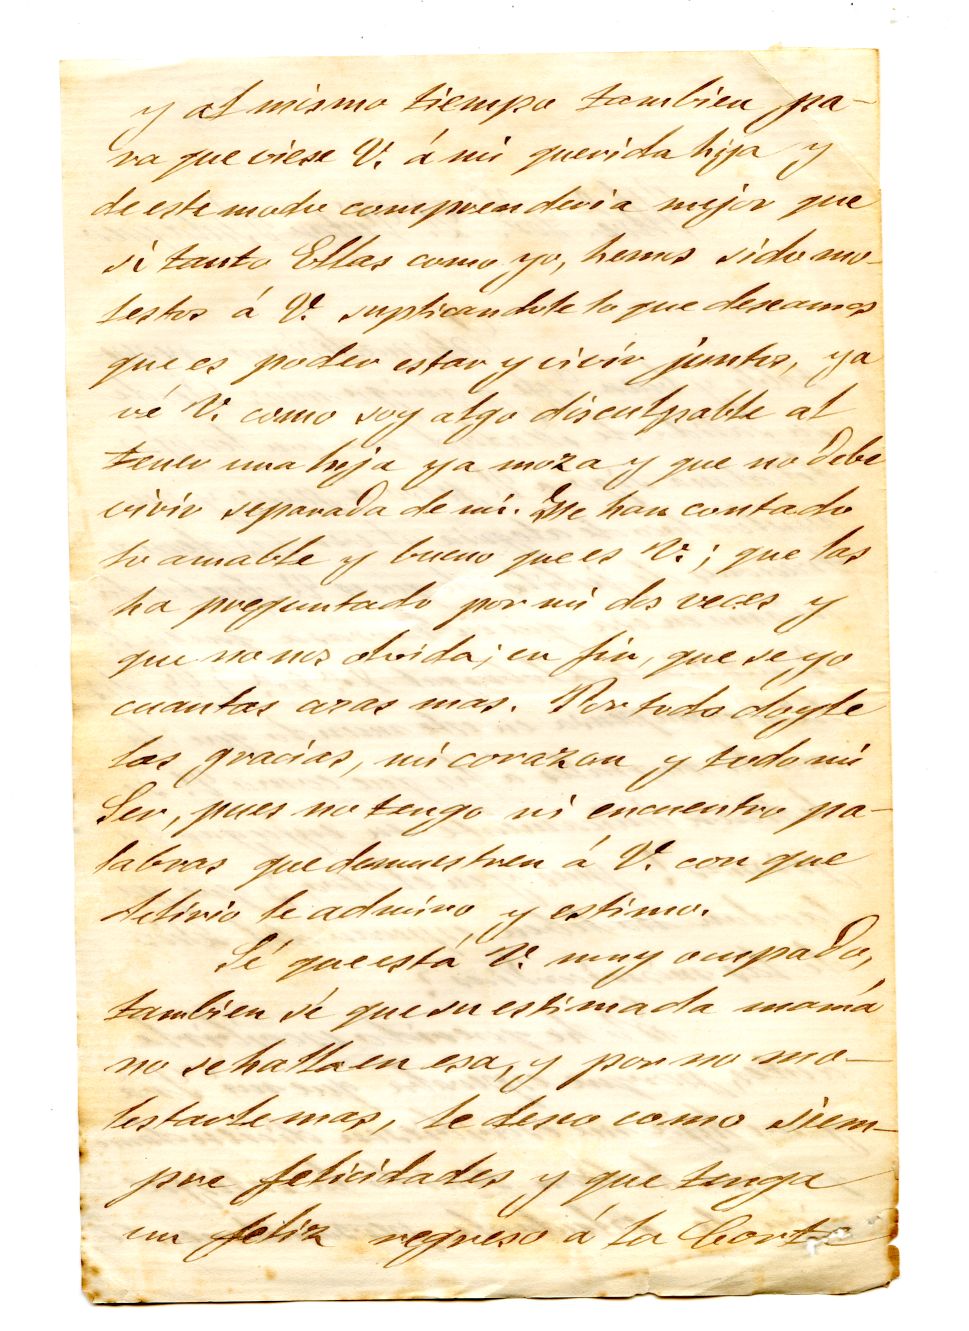 y al mismo tiempo tambien pa-
ra que viese V. á mi querida hija y
de este modo comprenderia mejor que
si tanto Ellas como yo, hemos sido mo-
lestos á V. suplicandole lo que deseamos
que es poder estar y vivir juntos, ya
vé V. como soy algo disculpable al
tener una hija ya moza y que no debe
vivir separada de mi. Me han contado
lo amable y bueno que es V.; que las
ha preguntado por mi dos veces y
que no nos olvida; en fin, que se yo
cuantas cosas mas. Por todo doyle
las gracias, mi corazon y todo mi
Ser, pues no tengo ni encuentro pa-
labras que demuestren á V. con que
delirio le admiro y estimo.
Sé que está V. muy ocupado,
tambien sé que su estimada mamá
no se halla en esa, y por no mo-
lestarle mas, le deseo como siem-
pre felicidades y que tenga
un feliz regreso á la Corte